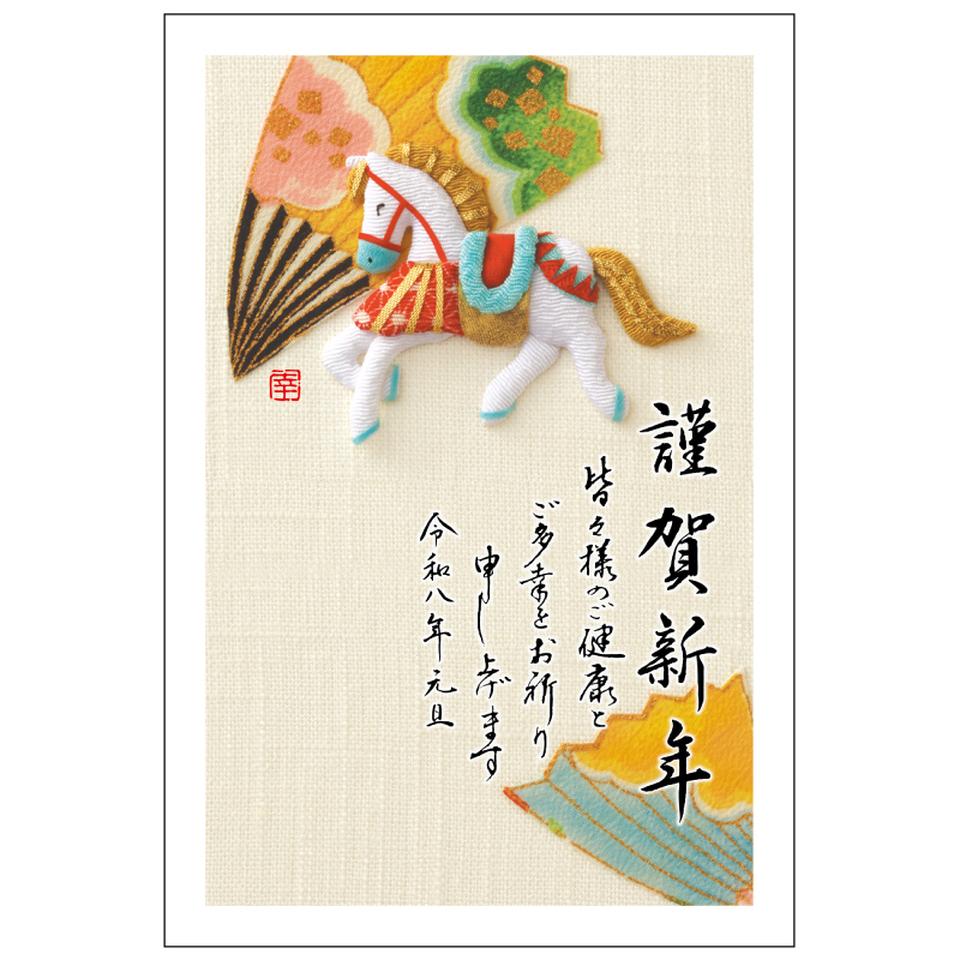 謹賀新年
皆々様のご健康と
ご多幸をお祈り
申し上げます
令和八年元旦
幸